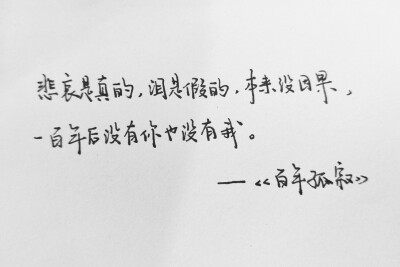 悲哀是真的，泪是假的，本来没因果，
一百年后没有你也没有我。
——《百年孤寂》